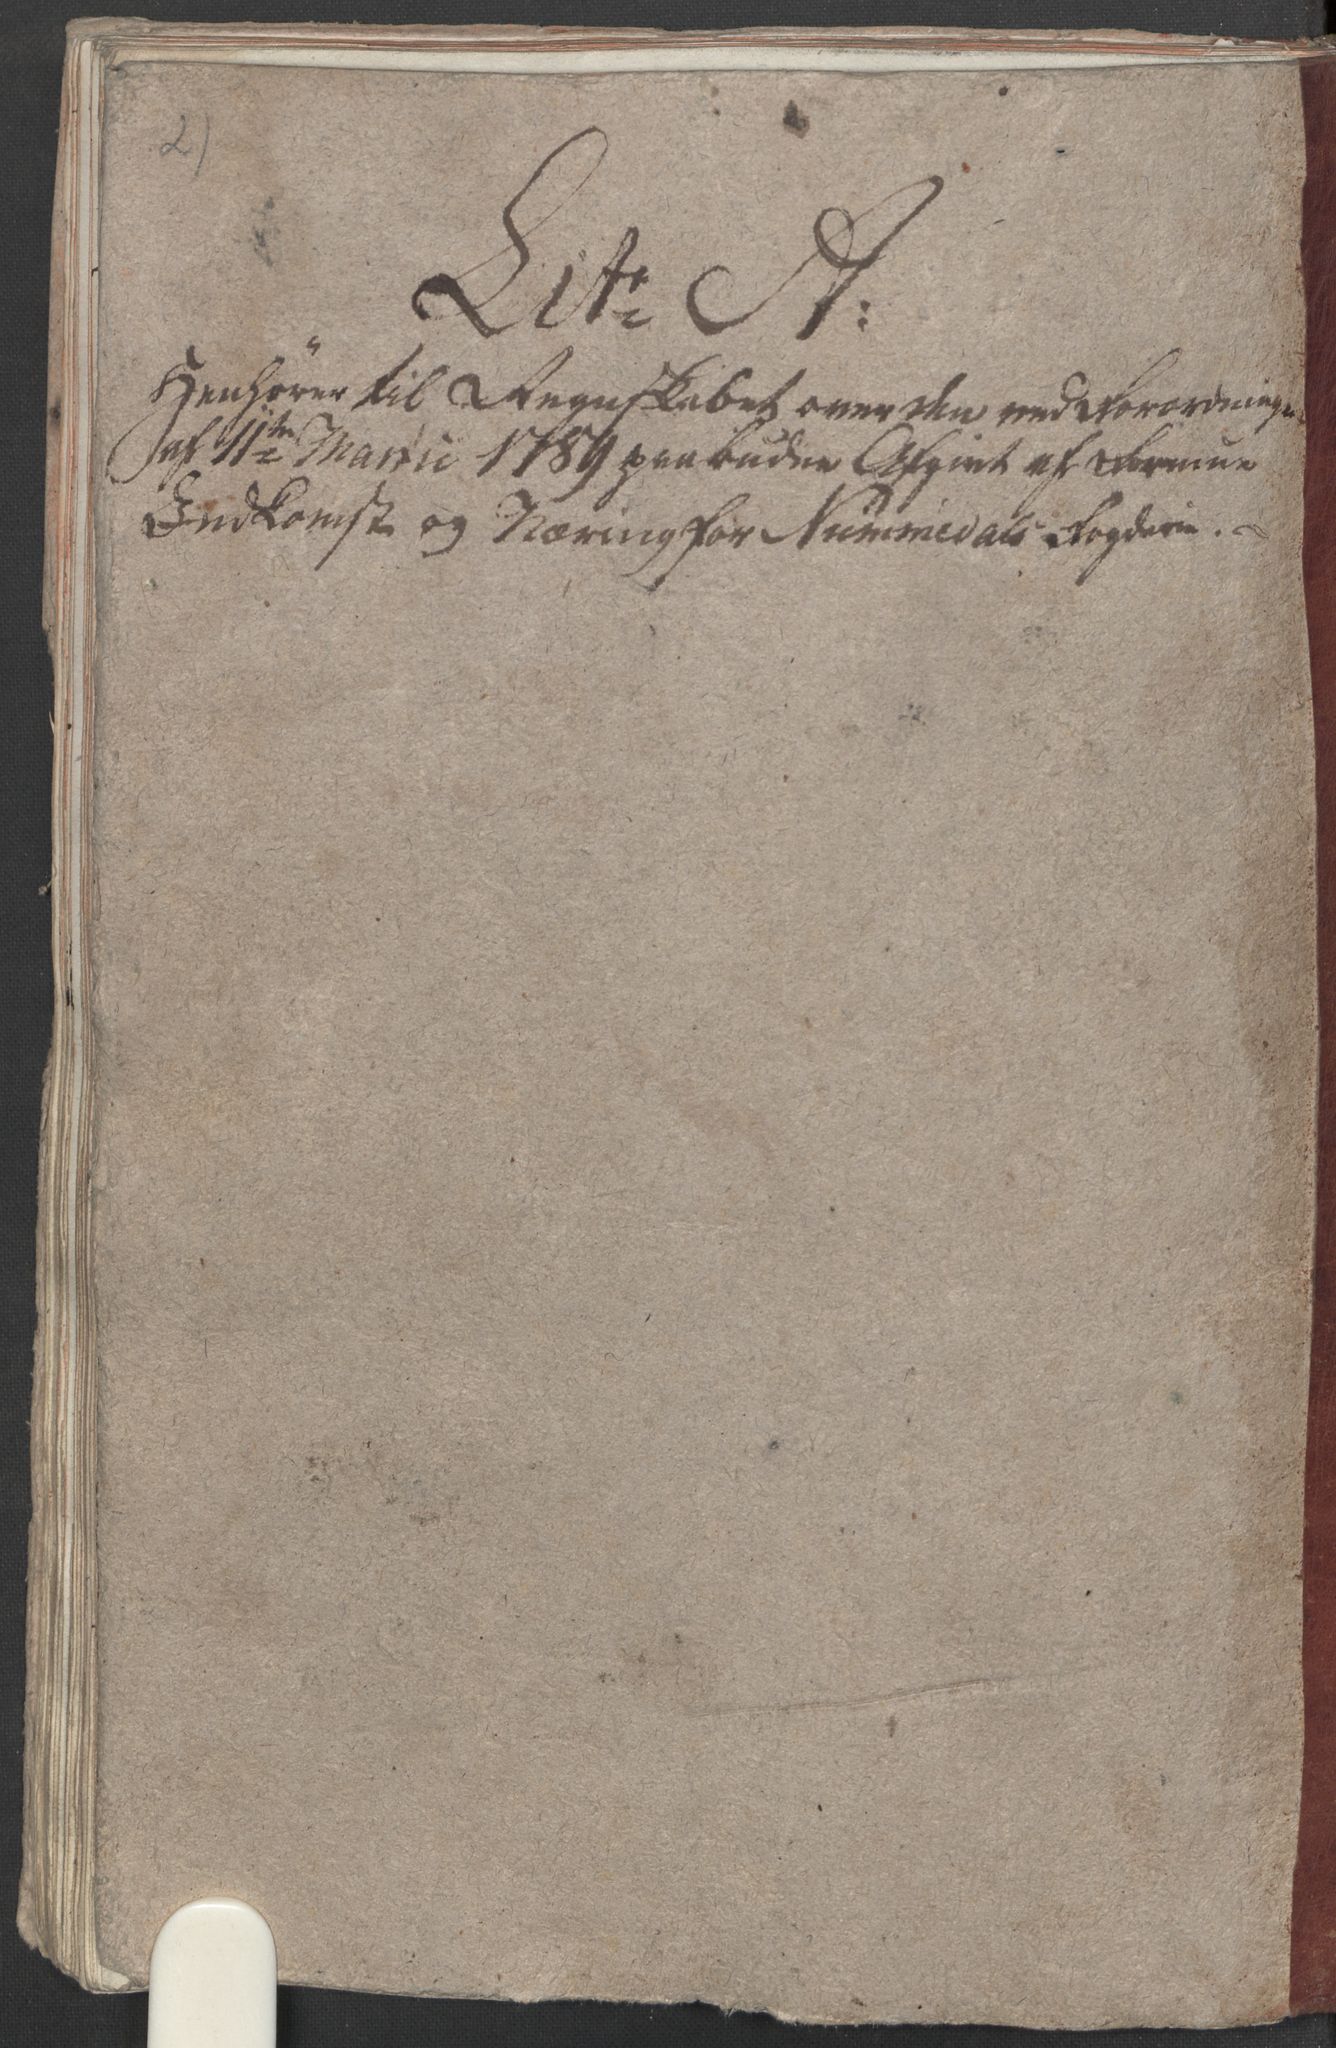 2)
Lit: A:
Henhører til Regnskabet over den ved Forordningen
af 11te Martii 1789 paabudne Afgivt af Formue
Indkomst og Næring for Nummedals Fogderie.